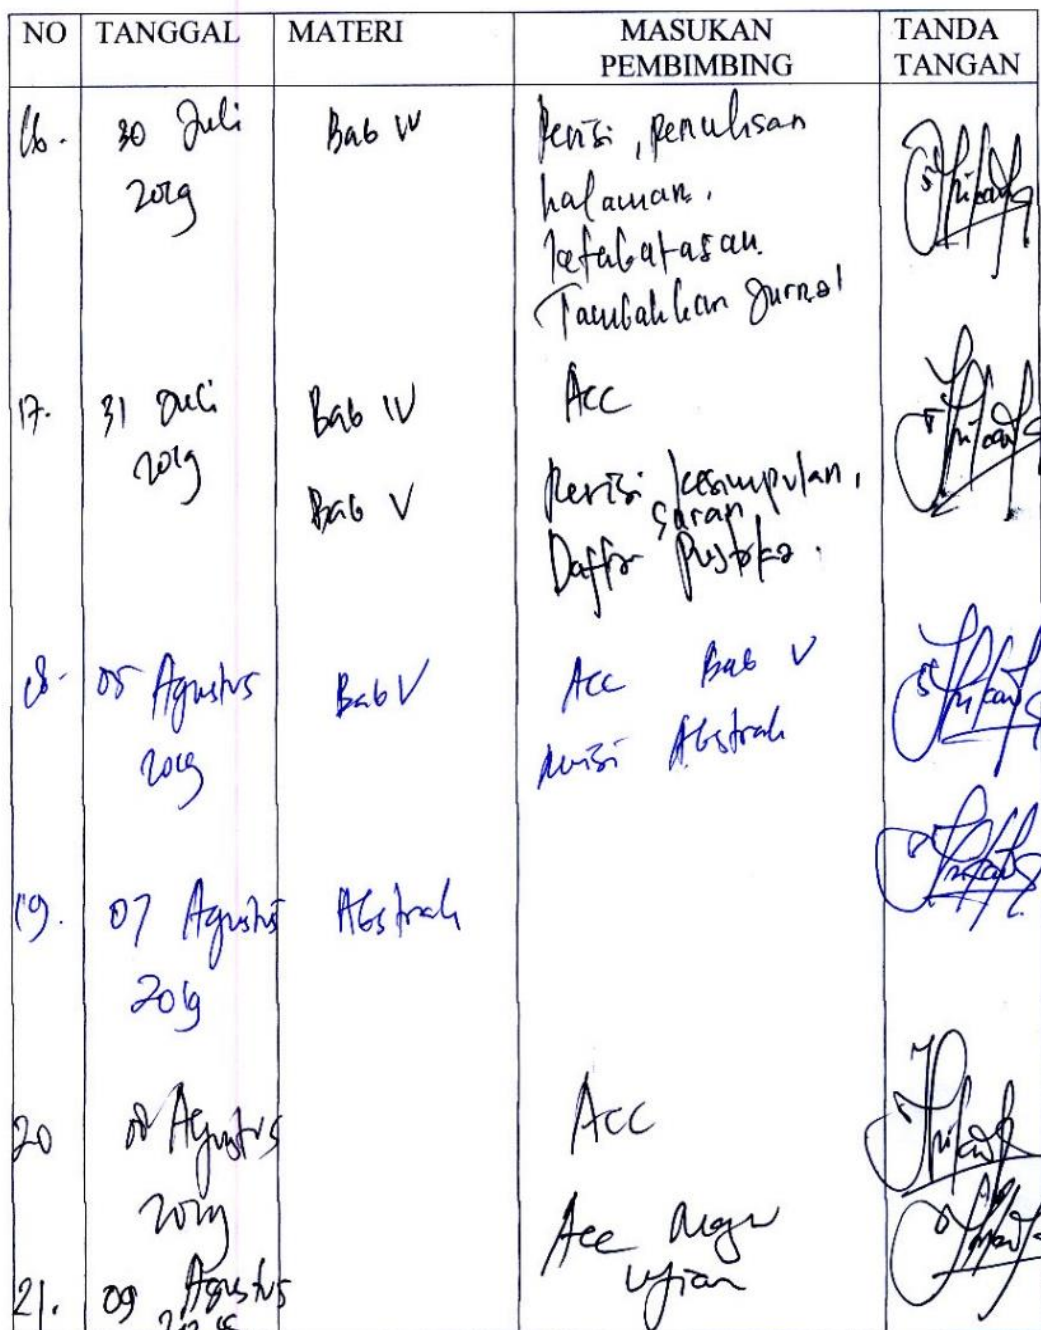 NO TANGGAL MATERI MASUKAN PEMBIMBING TANDA TANGAN
16. 30 Juli 2019 Bab IV Revisi, penulisan
halaman.
keterbatasan.
Tambahkan Jurnal
17. 31 Juli 2019 Bab IV Acc
Bab V Revisi kesimpulan,
saran
Daftar Pustaka.
18. 05 Agustus 2019 Bab V Acc Bab V
revisi Abstrak
19. 07 Agustus 2019 Abstrak
20 08 Agustus 2019 Acc
21. 09 Agustus Acc
ujian